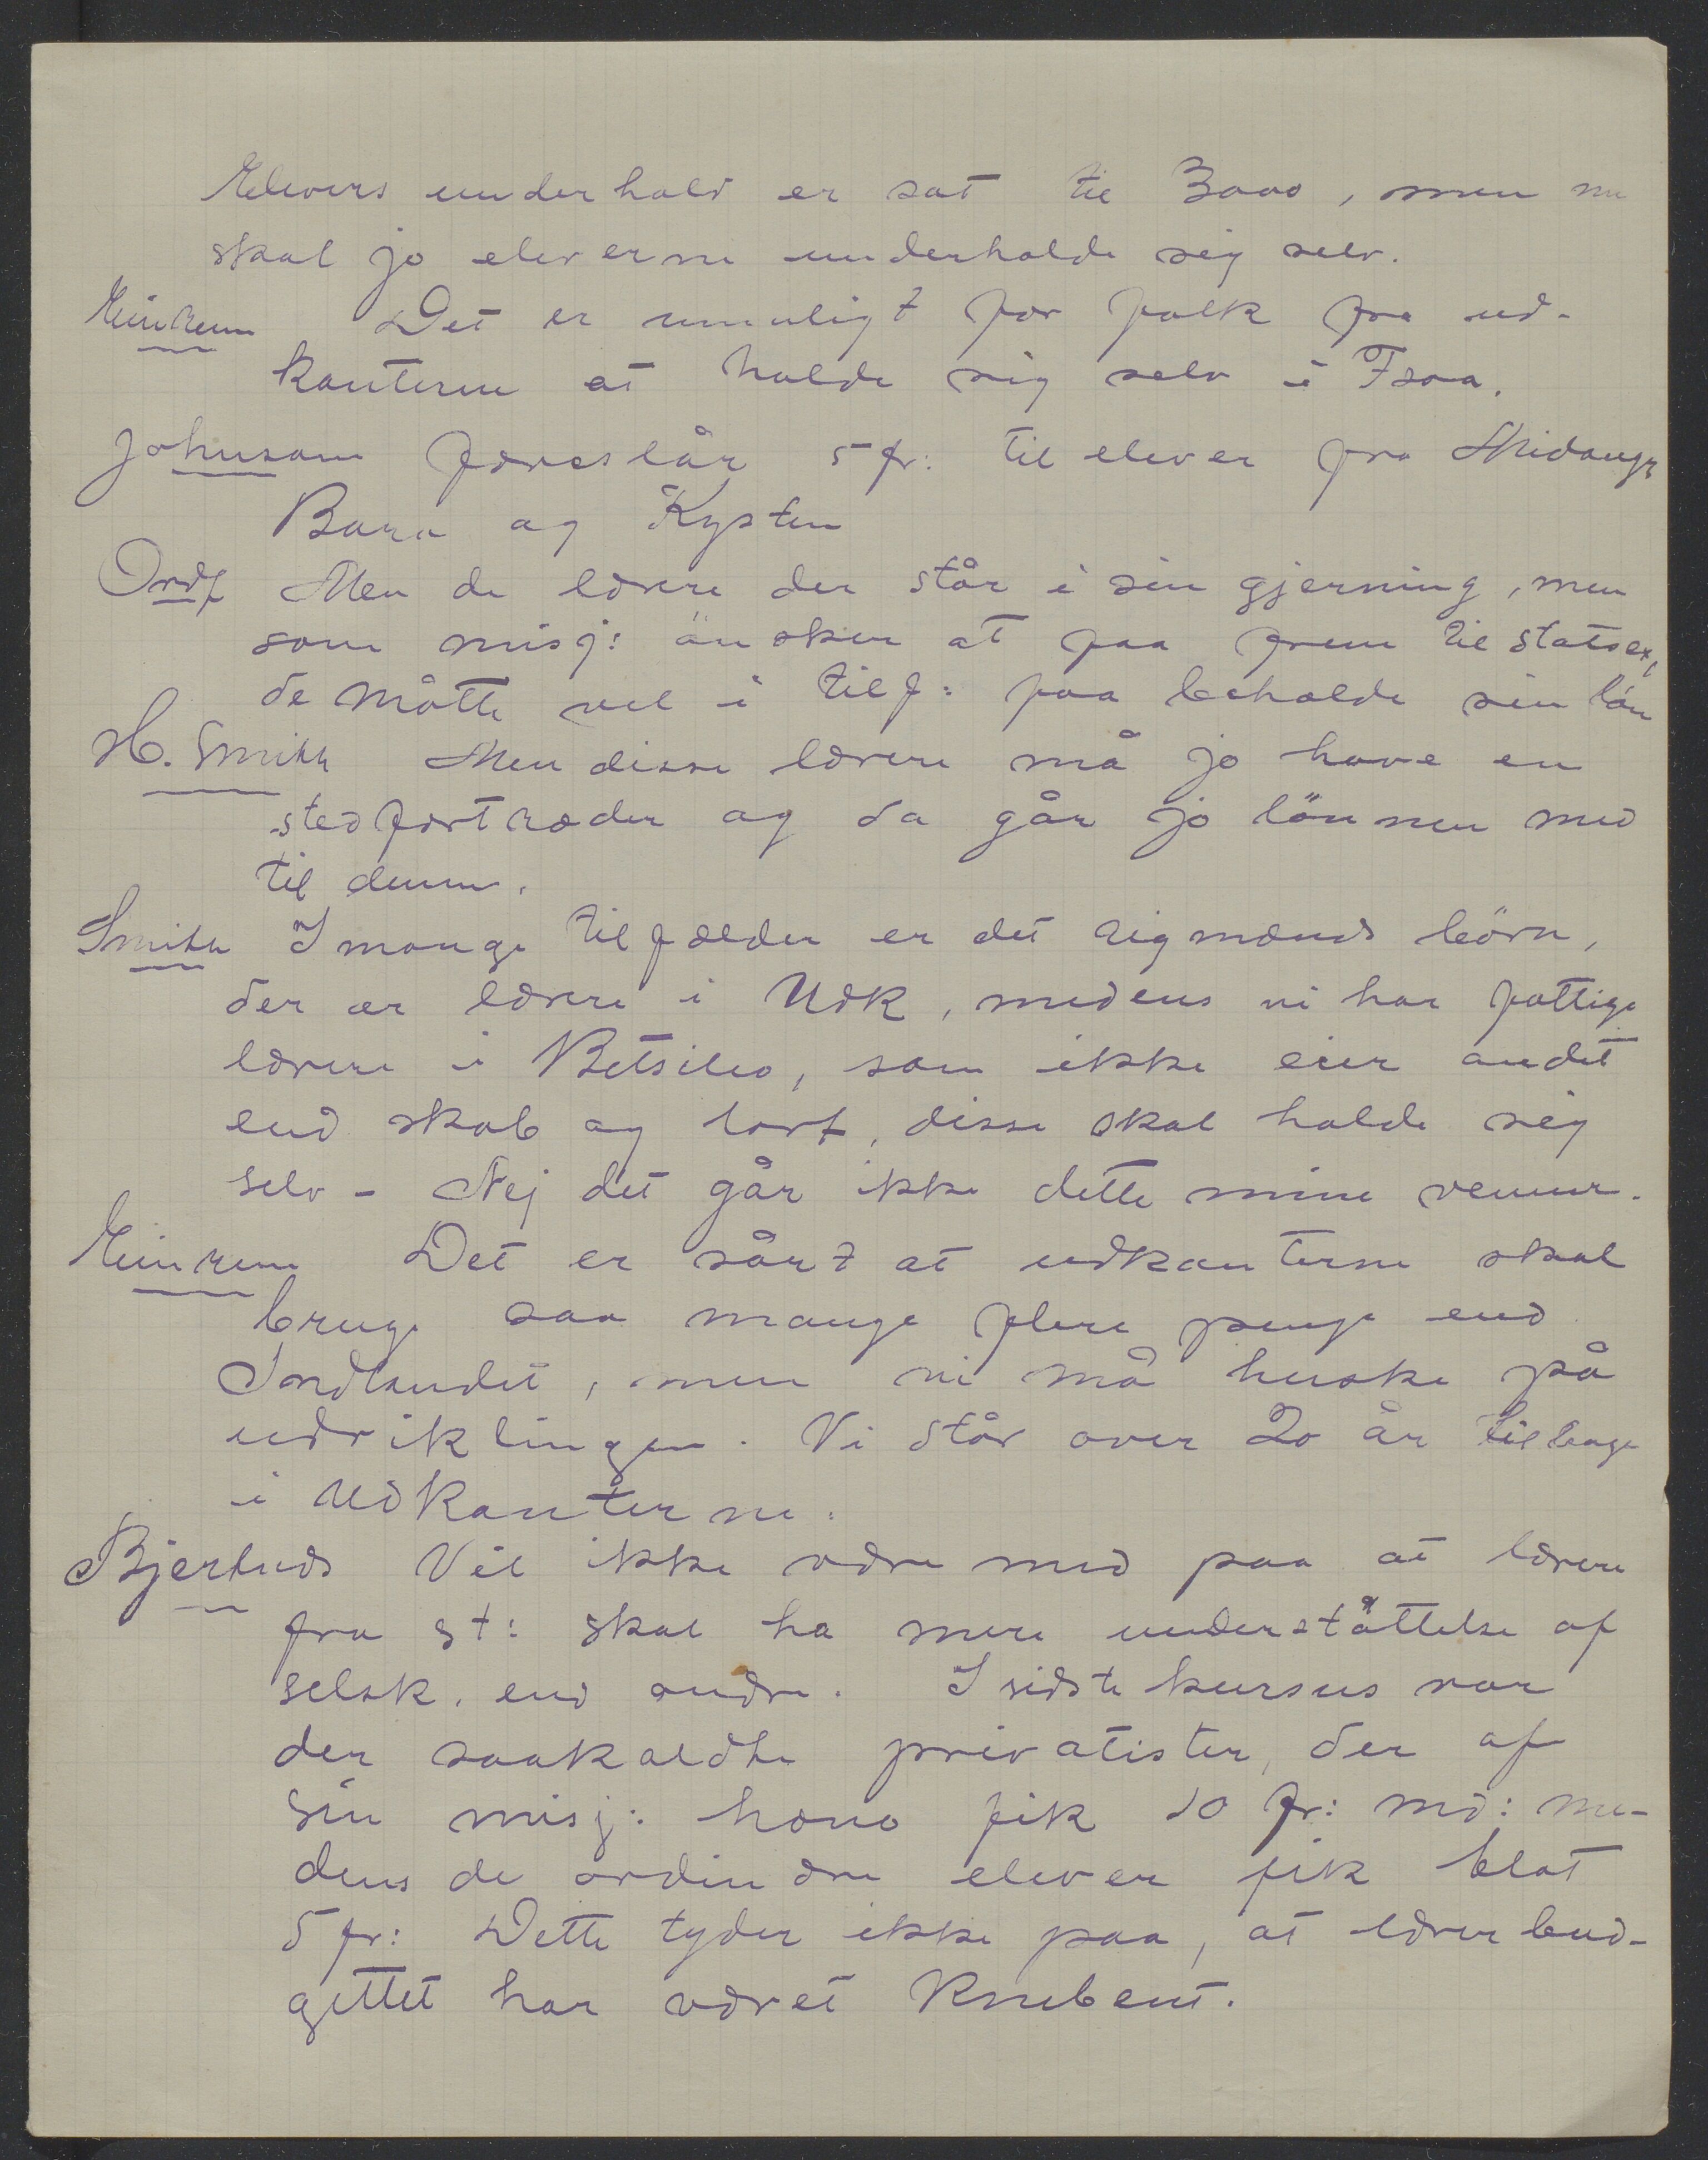 Elevers underhold er sat til 3000, men nu
skal jo eleverne underholde sig selv.
Einrem Det er umuligt for folk fra ud-
kanterne at holde sig selv i Fsoa.
Johnson foreslår 5 fr: til elever fra Midongy
Bara og Kysten
Ordf Men de lærere der står i sin gjerning, men
som misj: önsker at faa frem til statsex,
de måtte vel i tilf: faa beholde sin lön
H. Smith Men disse lærere må jo have en
stedfortræder og da går jo lönnen med
til denne.
Smith I mange tilfælder er det rigmænds börn,
der er lærere i Udk, medens vi har fattige
lærere i Betsileo, som ikke eier andet
end skab og lort, disse skal holde sig
selv - Nej det går ikke dette mine venner.
Einrem Det er sårt at udkanterne skal
bruge saa mange flere penge end
Indlandet, men vi må huske på
udviklingen. Vi står over 20 år tilbage
i Udkanterne.
Bjertnæs Vil ikke være med paa at lærere
fra st: skal ha mere understöttelse af
selsk. end andre. I sidste kursus var
der saakaldte privatister, der af
sin misj: hono fik 10 fr: md: me-
dens de ordinære elever fik blot
5 fr: Dette tyder ikke paa, at lærerbud-
gettet har været knebent.